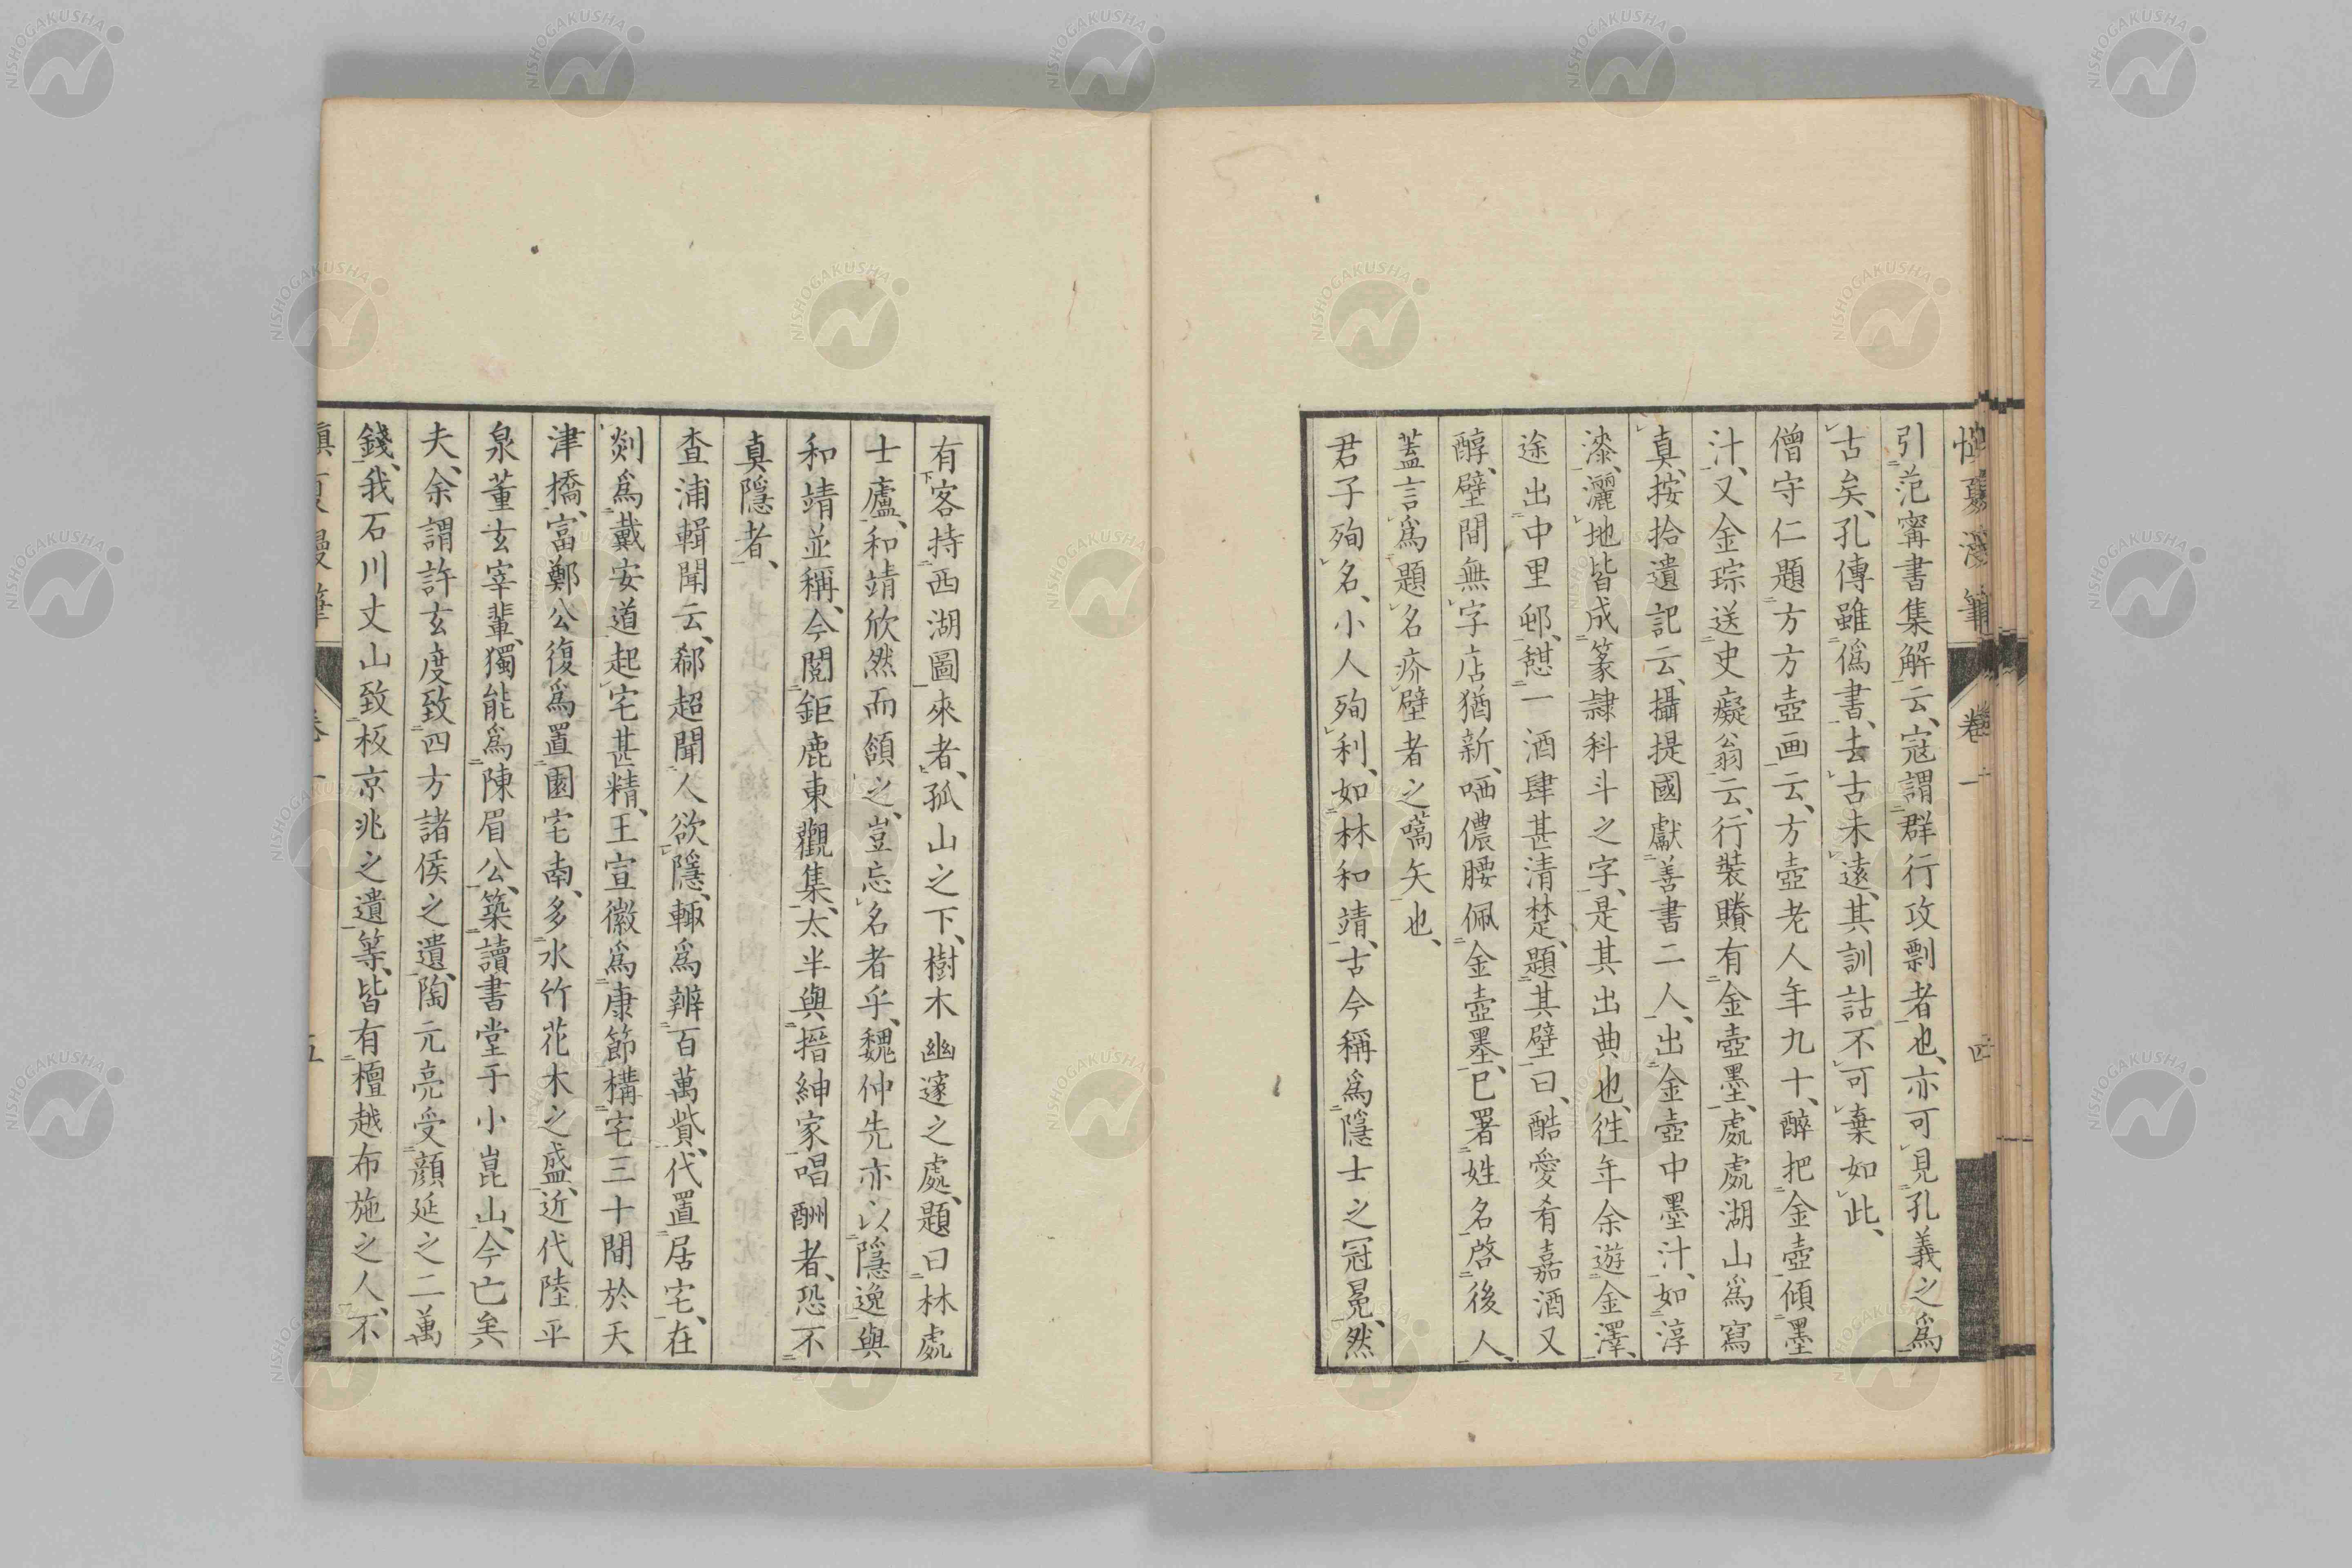 慎夏漫筆 卷一 四
引范甯書集解云、寇謂群行攻剽者也、亦可見孔義之爲
古矣、孔傳雖僞書、去古未遠、其訓詁不可棄如此、
僧守仁題方方壺画云、方壺老人年九十、醉把金壺傾墨
汁、又金琮送史癡翁云、行裝賸有金壺墨、處處湖山爲寫
真、按拾遺記云、攝提國獻善書二人、出金壺中墨汁、如淳
漆、灑地皆成篆隷科斗之字、是其出典也、徃年余遊金澤、
途出中里邨、憇一酒肆甚清楚、題其壁曰、酷愛肴嘉酒又
醇、壁間無字店猶新、哂儂腰佩金壺墨、已署姓名啓後人、
蓋言爲題名疥壁者之嚆矢也、
君子殉名、小人殉利、如林和靖、古今稱爲隱士之冠冕、然
有客持西湖圖來者、孤山之下、樹木幽邃之處、題曰林處
士廬、和靖欣然而頷之、豈忘名者乎、魏仲先亦以隱逸與
和靖並稱、今閲鉅鹿東觀集、太半與搢紳家唱酬者、恐不
真隱者、
查浦輯聞云、郗超聞人欲隱、輙爲辨百萬貲、代置居宅、在
剡爲戴安道起宅甚精、王宣徽爲康節構宅三十間於天
津橋、富鄭公復爲置園宅南、多水竹花木之盛、近代陸平
泉董玄宰輩、獨能爲陳眉公、築讀書堂于小崑山、今亡矣
夫、余謂許玄度致四方諸侯之遺、陶元亮受顔延之二萬
錢、我石川丈山致板京兆之遺等、皆有檀越布施之人、不
漫筆 卷一 五
NISHOGAKUSHA